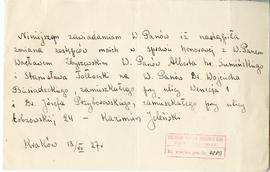 Niniejszem zawiadamiam W. Panów iż nastąpiła
zmiana zastępców moich w sprawie honorowej z W. Panem
Wacławem Zbyszewskim W. Panów Alberta hr. Sumińskiego
i Stanisława na W. Panów Dr. Wojciecha
Biasiadeckiego, zamieszkałego przy ulicy Wenecja 1
i Dr. Józefa Przybosowskiego, zamieszkałego przy ulicy
Łobzowskiej, 24 — Kazimierz Jeleński
Kraków 13/VI 27r